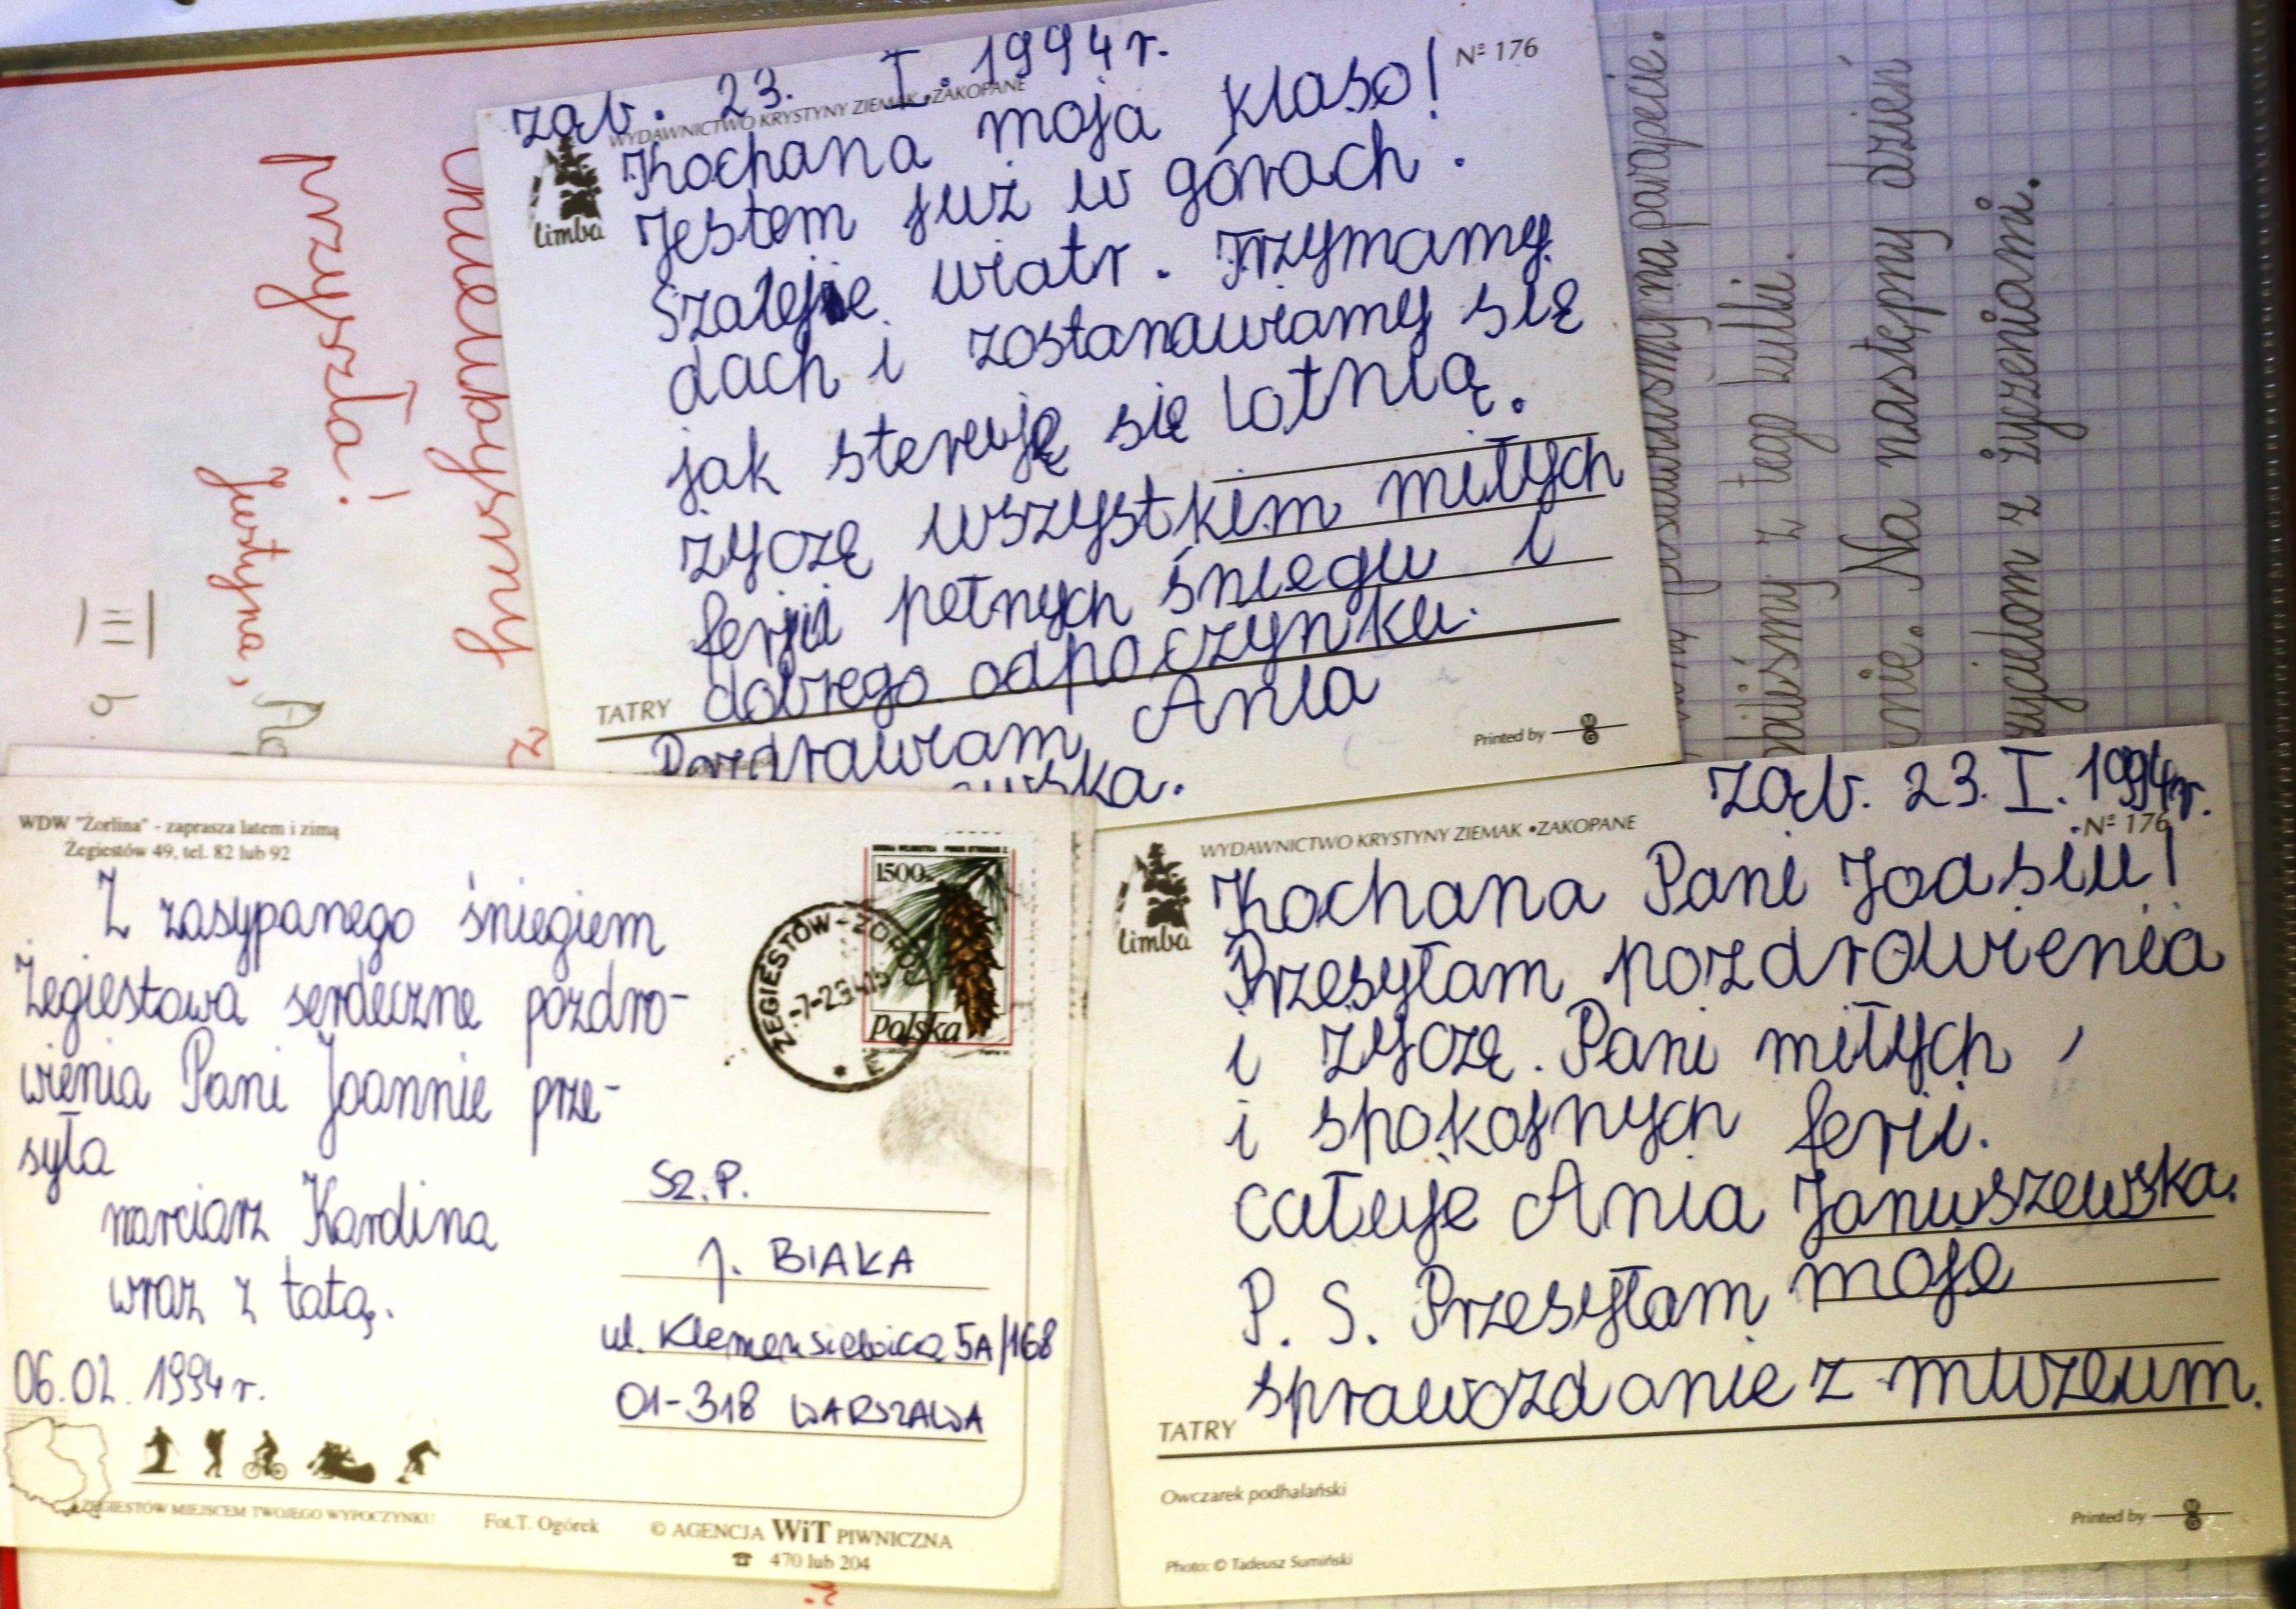 Ząb. 23. I. 1994 r.
Nº 176
WYDAWNICTWO KRYSTYNY ZIEMAK •ZAKOPANE
limba
Kochana moja klaso!
Jestem już w górach.
Szaleje wiatr. Trzymamy
dach i zostanawiamy się
jak steruję się lotnią.
Życzę wszystkim miłych
ferii pełnych śniegu i
dobrego odpoczynku.
TATRY
Pozdrawiam Ania
Printed by
WDW "Żorlina" - zaprasza latem i zimą
Żegiestów 49, tel. 82 lub 92
Z zasypanego śniegiem
Żegiestowa serdeczne pozdro-
wienia Pani Joannie prze-
syła
narciarz Karolina
wraz z tatą.
06.02.1994 r.
1500
polska
Sz. P.
J. BIAKA
ul. Klemensiewicza 5A/168
01-318 WARSZAWA
ŻEGIESTÓW MIEJSCEM TWOJEGO WYPOCZYNKU
Fot.T. Ogórek
© AGENCJA WiT PIWNICZNA
☎ 470 lub 204
Ząb. 23. I. 1994 r.
Nº 176
WYDAWNICTWO KRYSTYNY ZIEMAK •ZAKOPANE
limba
Kochana Pani Joasiu!
Przesyłam pozdrowienia
i życzę Pani miłych,
i spokojnych ferii.
Całuje Ania Januszewska.
P. S. Przesyłam moje
sprawozdanie z muzeum.
TATRY
Owczarek podhalański
Printed by
Photo: © Tadeusz Sumiński
przyszła!
Justyna,
na parapecie.
z tego kulki.
Na następny dzień
z życzeniami.